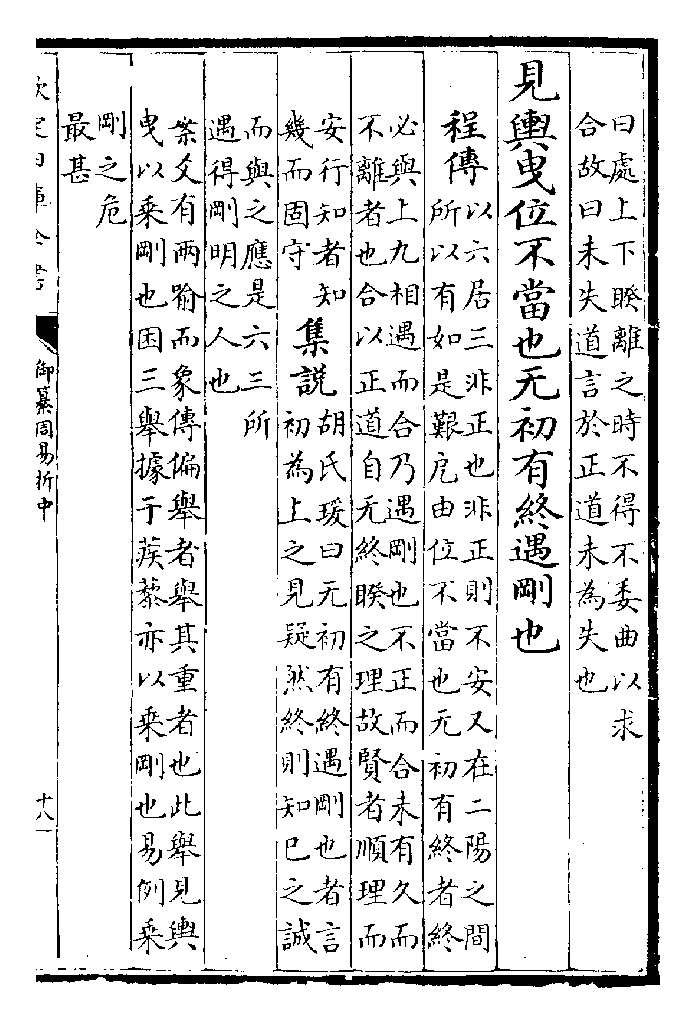 曰處上下睽離之時不得不委曲以求
合故曰未失道言於正道未為失也
見輿曳位不當也无初有終遇剛也
程傳
以六居三非正也非正則不安又在二陽之間
所以有如是艱厄由位不當也无初有終者終
必與上九相遇而合乃遇剛也不正而合未有久而
不離者也合以正道自无終睽之理故賢者順理而
安行知者知
幾而固守
集說
胡氏瑗曰无初有終遇剛也者言
初為上之見疑然終則知已之誠
而與之應是六三所
遇得剛明之人也
案爻有兩喻而象傳偏舉者舉其重者也此舉見輿
曳以乘剛也困三舉據于蒺藜亦以乘剛也易例乘
剛之危
最甚
欽定四庫全書
御纂周易折中
十八